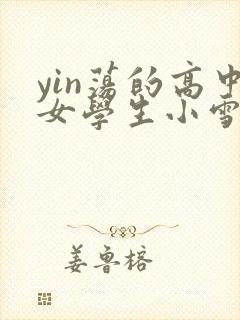 yin蕩的高中
女學生小雪
姜魯榕